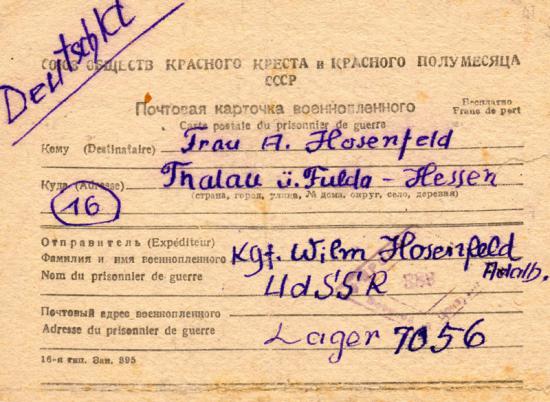 Deutschl.
СОЮЗ ОБЩЕСТВ КРАСНОГО КРЕСТА и КРАСНОГО ПОЛУМЕСЯЦА
СССР
Почтовая карточка военнопленного
Carte postale du prisonnier de guerre
Бесплатно
Franc de port
Кому (Destinataire) Frau A. Hosenfeld
Куда (Adresse) Thalau ü. Fulda - Hessen
(страна, город, улица, № дома, округ, село, деревня)
16
Отправитель (Expéditeur)
Фамилия и имя военнопленного Kgf. Wilm Hosenfeld
Nom du prisonnier de guerre UdSSR Adalb.
Почтовый адрес военнопленного
Adresse du prisonnier de guerre Lager 7056
16-я тип. Зак. 895